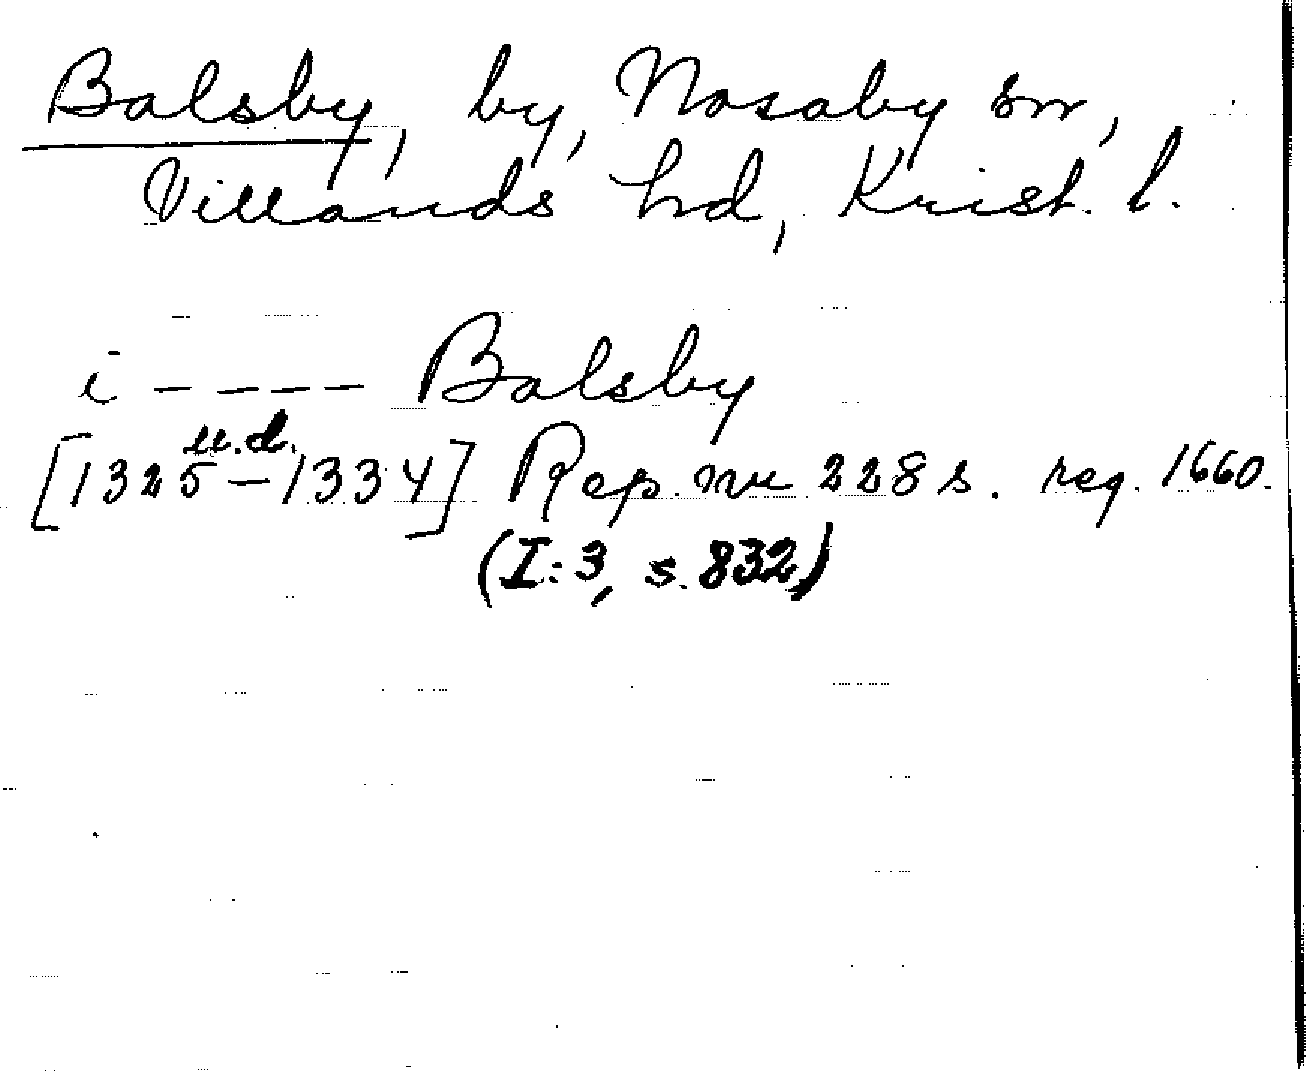 Balsby, by, Nosaby sn,
Villands hd, Krist. l.
i - - - - Balsby
u.d.
[1325-1334] Rep. nu 228 s. reg. 1660.
(I:3, s. 832)